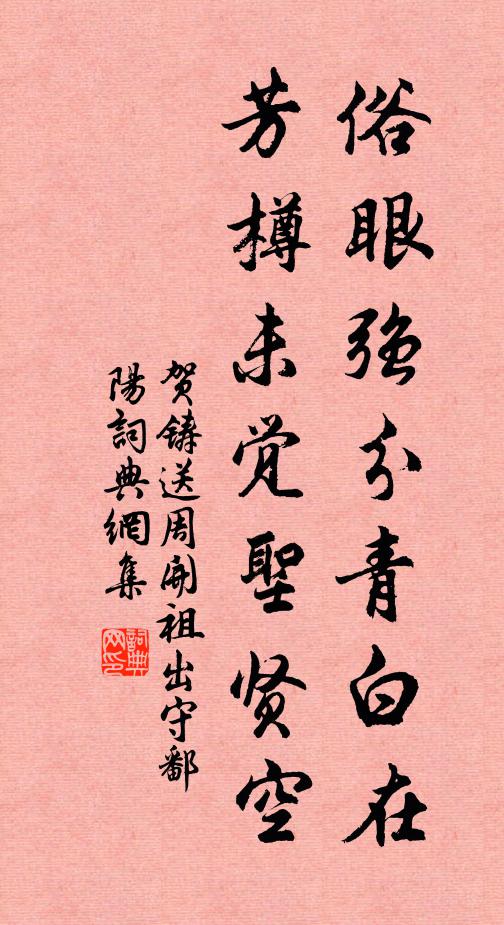 俗眼強分青白在
芳樽未觉聖贤空
贺鑄送周開祖出守鄱
陽詞典網集
詞典
网印